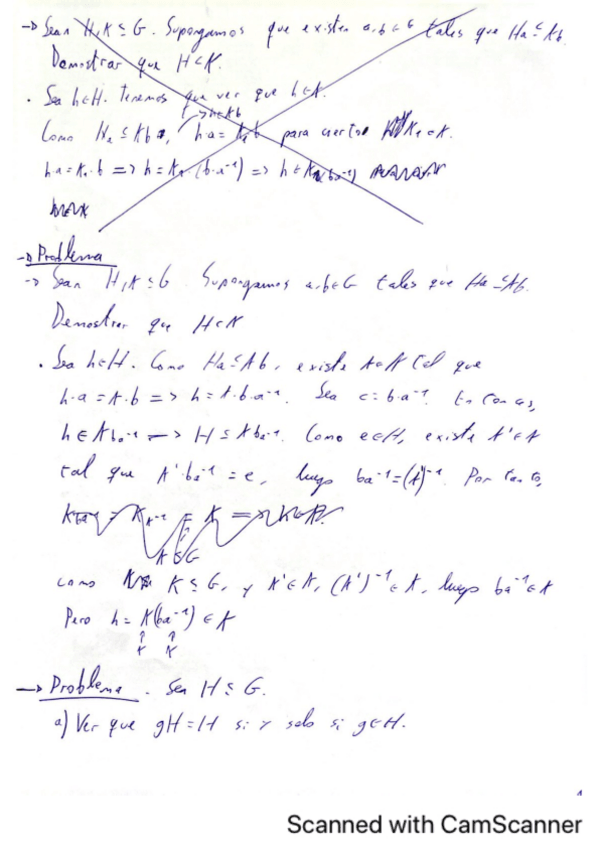 → Sean H,K ≤ G. Supongamos que existen a,b ∈ G tales que Ha ≤ Kb
Demostrar que H ⊂ K.
· Sea h∈H. Tenemos que ver que h∈K.
→ h∈Kb
Como Ha ≤ Kb, ha = K₁b para cierto K₁∈K.
h·a = K₁·b => h = K₁·(b·a⁻¹) => h ∈ K(ba⁻¹)
→ Problema
→ Sean H,K ≤ G. Supongamos a,b∈G tales que Ha ≤ Kb.
Demostrar que H⊂K
· Sea h∈H. Como Ha ≤ Kb, existe K∈K tal que
h·a = K·b => h = K·b·a⁻¹. Sea c = b·a⁻¹. Entonces,
h ∈ Kba⁻¹ → H ≤ Kba⁻¹. Como e∈H, existe K'∈K
tal que K'·ba⁻¹ = e, luego ba⁻¹ = (K')⁻¹. Por tanto,
K ≤ G
como K ≤ G, y K'∈K, (K')⁻¹∈K, luego ba⁻¹∈K
Pero h = K(ba⁻¹) ∈ K
↑ ↑
K K
→ Problema. Sea H ≤ G.
a) Ver que gH = H si y solo si g∈H.
1
Scanned with CamScanner